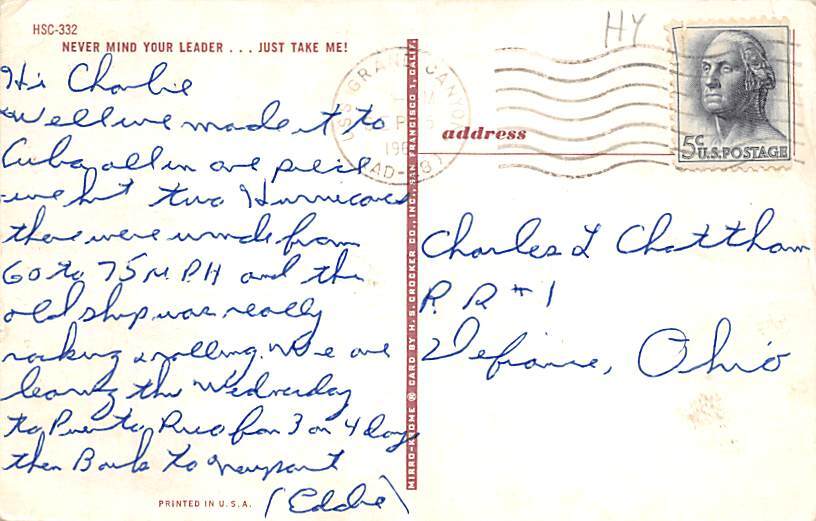 HSC-332
NEVER MIND YOUR LEADER . . . JUST TAKE ME!
Hi Charlie
Well we made it to
Cuba all in one piece
we hit two Hurricanes
there were winds from
60 to 75 M.P.H and the
old ship was really
rocking & rolling. We are
leaving this Wednesday
to Puerto Rico for 3 or 4 days
then Back to Newport
(Eddie)
PRINTED IN U.S.A.
MIRRO-KROME ® CARD BY H. S. CROCKER CO., INC., SAN FRANCISCO 1, CALIF.
HY
USS GRAND CANYON
SEP
196
(AD-28)
5¢ U.S. POSTAGE
address
Charles L Chattham
R. R #1
Defiance, Ohio